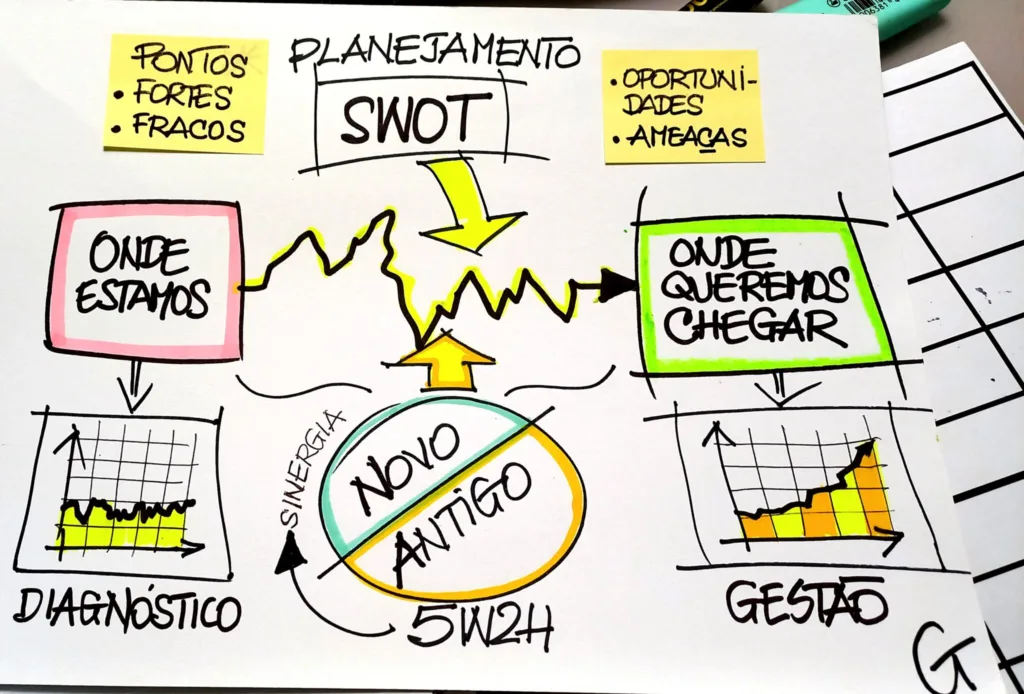 PLANEJAMENTO
SWOT
PONTOS
• FORTES
• FRACOS
• OPORTUNI-
DADES
• AMEAÇAS
ONDE
ESTAMOS
ONDE
QUEREMOS
CHEGAR
SINERGIA
NOVO
ANTIGO
5W2H
DIAGNÓSTICO
GESTÃO
G